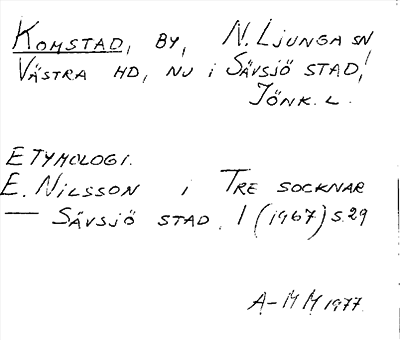 KOMSTAD, BY, N. LJUNGA SN
VÄSTRA HD, NU i SÄVSJÖ STAD,
JÖNK. L.
ETYMOLOGI.
E. NILSSON i TRE SOCKNAR
— SÄVSJÖ STAD. 1 (1967) S.29
A-M M 1977.